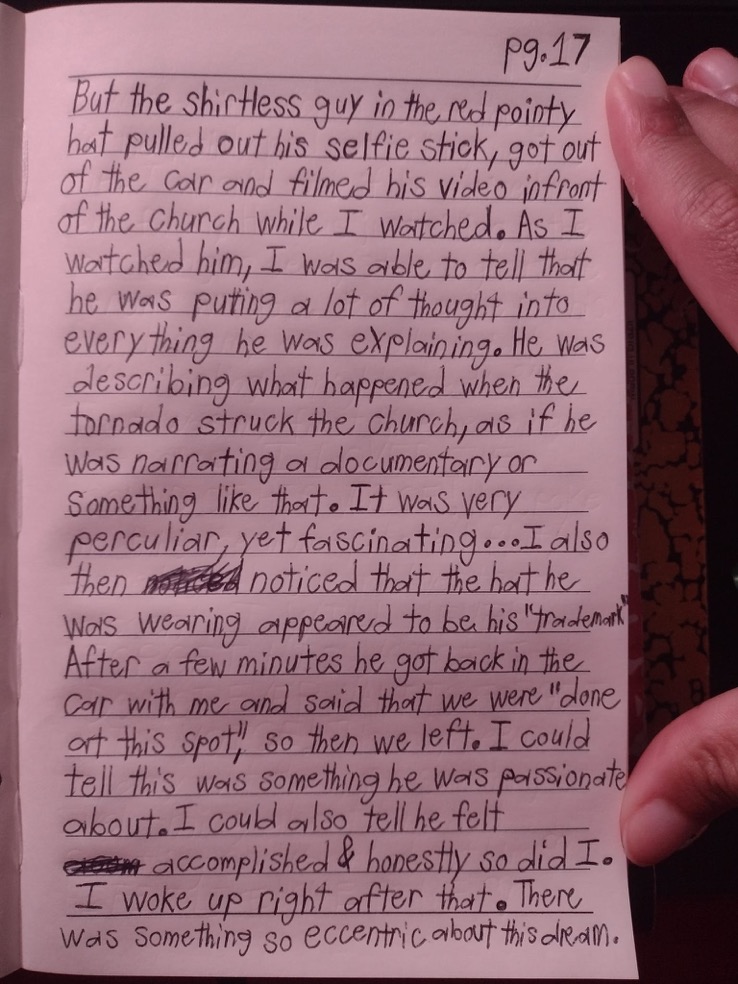 pg.17
But the shirtless guy in the red pointy
hat pulled out his selfie stick, got out
of the car and filmed his video infront
of the church while I watched. As I
watched him, I was able to tell that
he was puting a lot of thought into
everything he was explaining. He was
describing what happened when the
tornado struck the church, as if he
was narrating a documentary or
something like that. It was very
perculiar, yet fascinating...I also
then noticed that the hat he
was wearing appeared to be his "trademark"
After a few minutes he got back in the
car with me and said that we were "done
at this spot", so then we left. I could
tell this was something he was passionate
about. I could also tell he felt
accomplished & honestly so did I.
I woke up right after that. There
was something so eccentric about this dream.